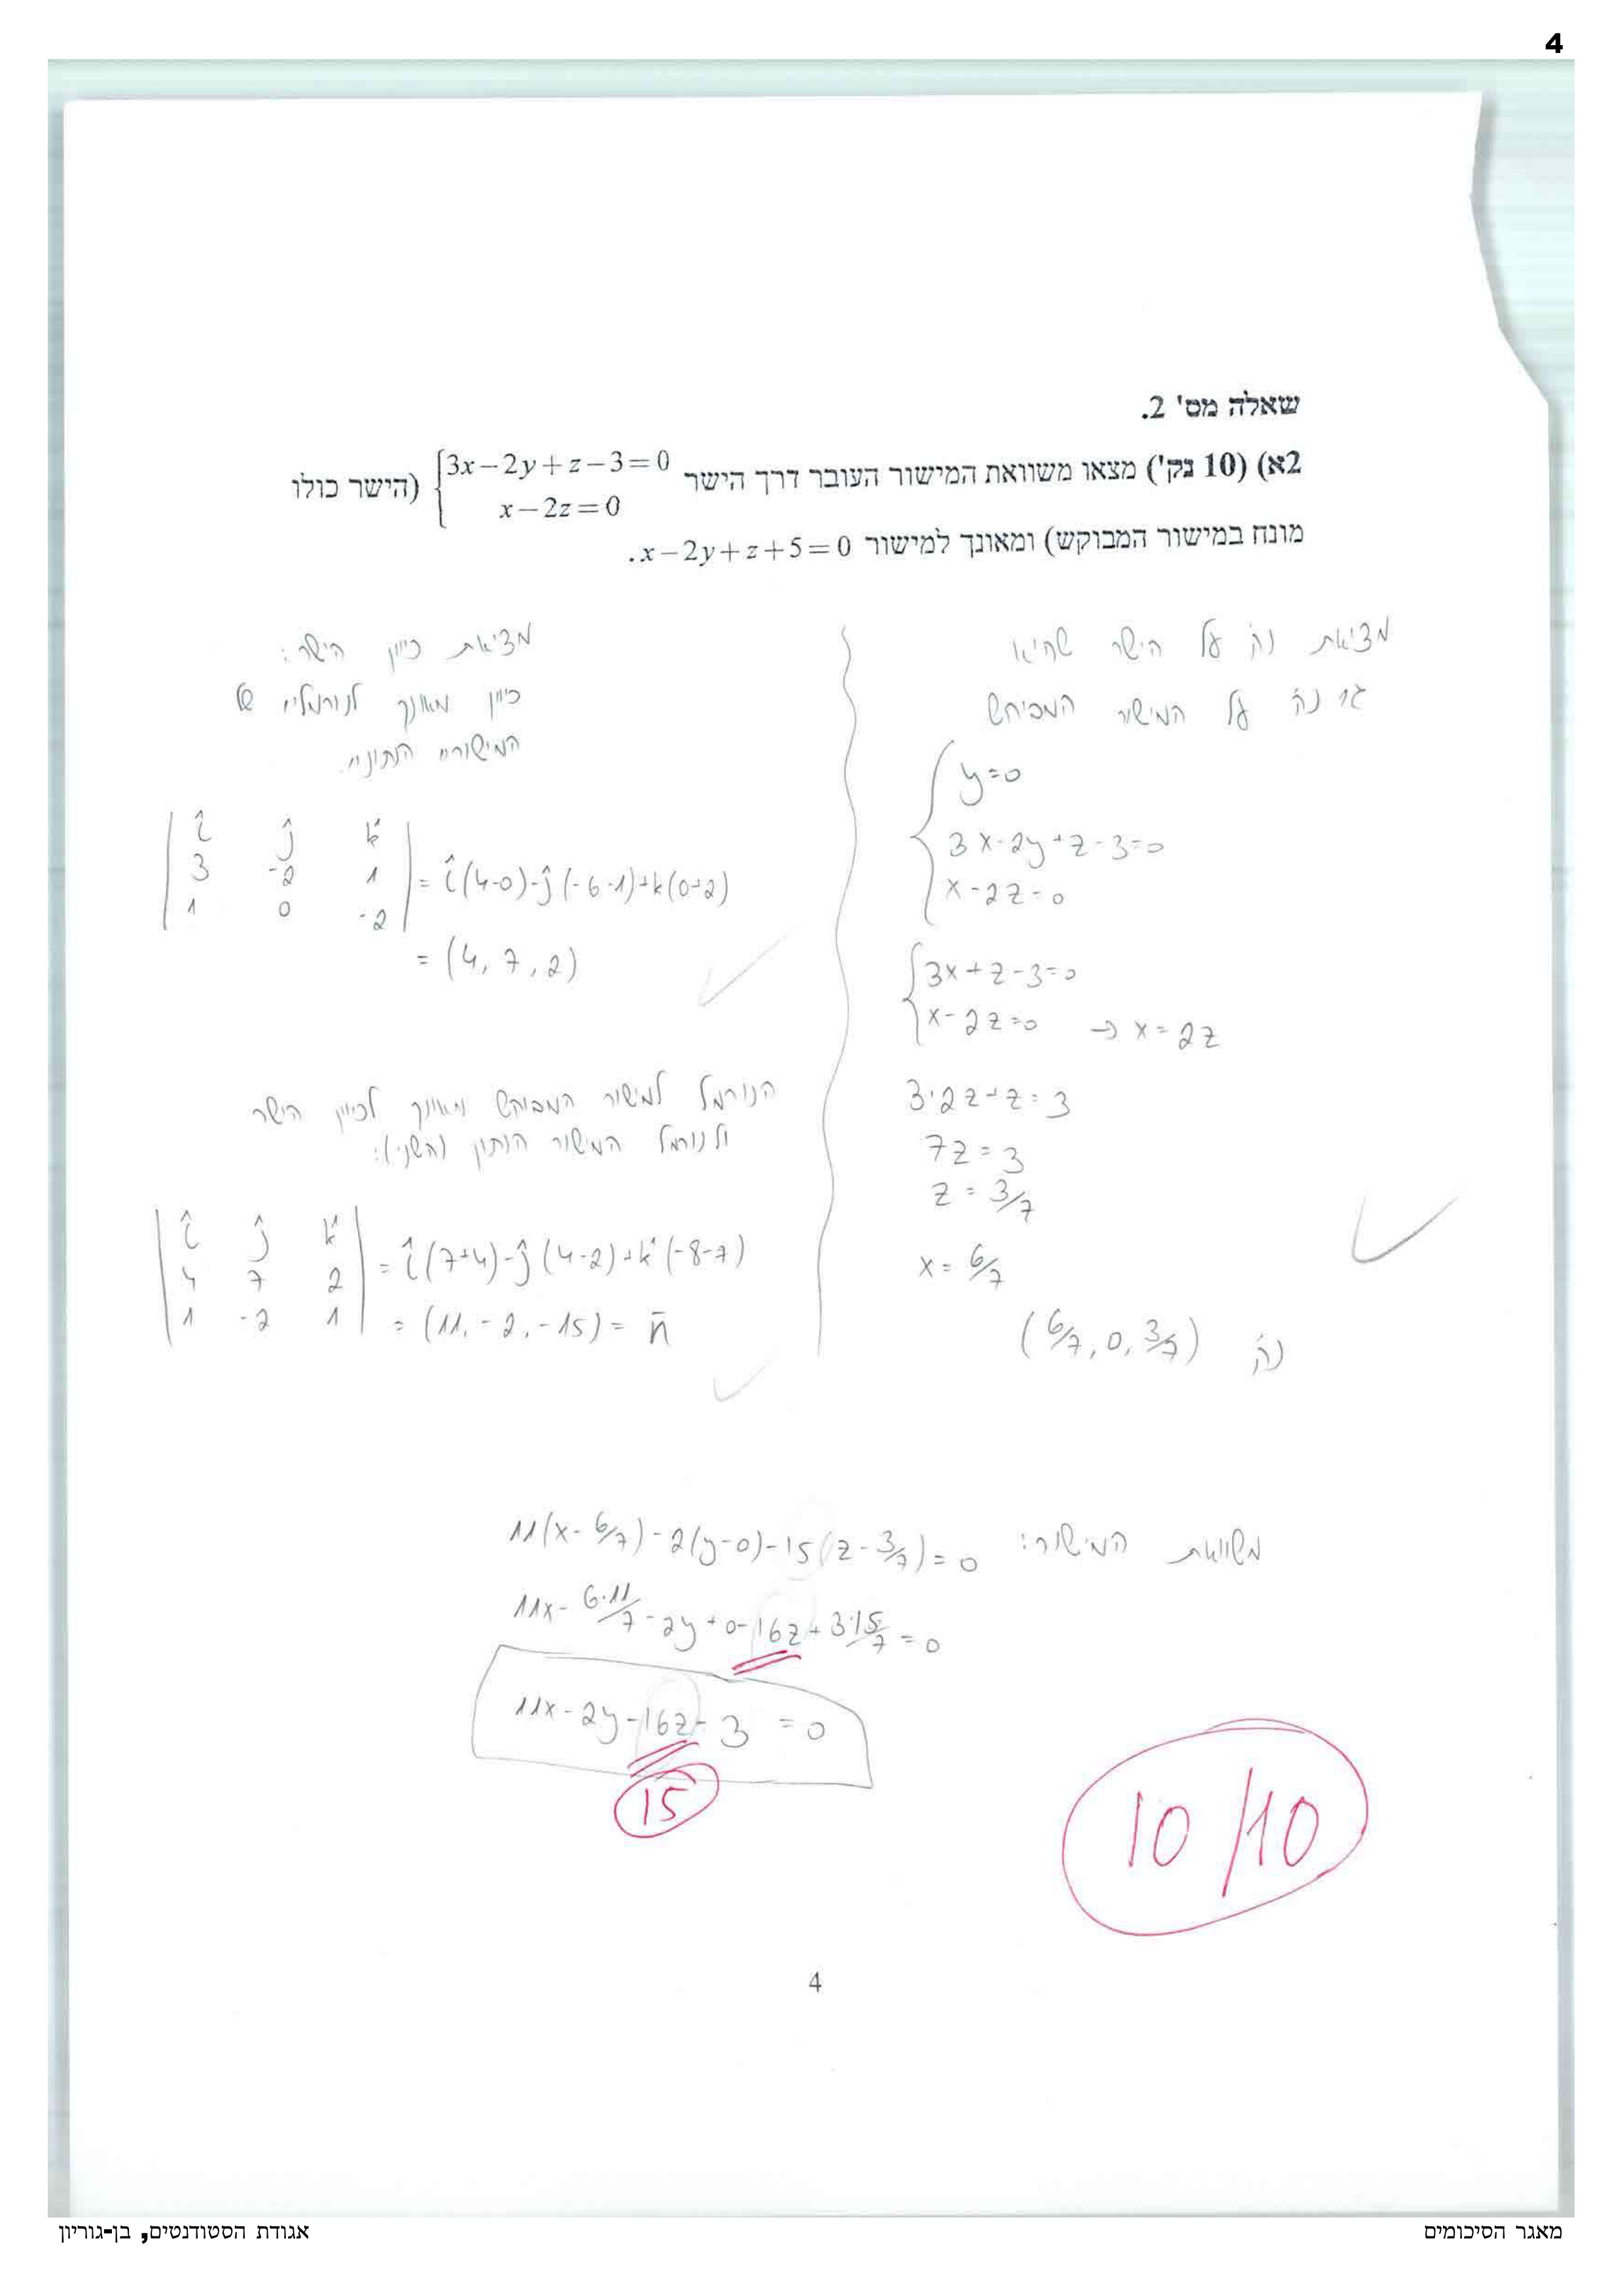 4
שאלה מס' 2.
2א) (10 נק') מצאו משוואת המישור העובר דרך הישר { 3x−2y+z−3=0 (הישר כולו
x−2z=0
מונח במישור המבוקש) ומאונך למישור x−2y+z+5=0.
מציאת נק' על הישר שהיא
גם נק' על המישור המבוקש
{ y=0
3x-2y+z-3=0
x-2z=0
{ 3x+z-3=0
x-2z=0 → x=2z
3·2z+z=3
7z=3
z=3/7
x=6/7
נק' (6/7, 0, 3/7)
מציאת כיוון הישר:
כיוון מאונך לנורמלים של
המישורים הנתונים.
| î ĵ k̂ |
| 3 -2 1 | = î(4-0)-ĵ(-6-1)+k(0+2)
| 1 0 -2 |
= (4, 7, 2)
הנורמל למישור המבוקש מאונך לכיוון הישר
ולנורמל המישור הנתון (השני):
| î ĵ k̂ |
| 4 7 2 | = î(7+4)-ĵ(4-2)+k̂(-8-7)
| 1 -2 1 | = (11, -2, -15) = n̄
משוואת המישור: 11(x-6/7)-2(y-0)-15(z-3/7)=0
11x-6·11/7-2y+0-16z+3·15/7=0
11x-2y-16z-3 =0
15
10/10
4
מאגר הסיכומים
אגודת הסטודנטים, בן-גוריון